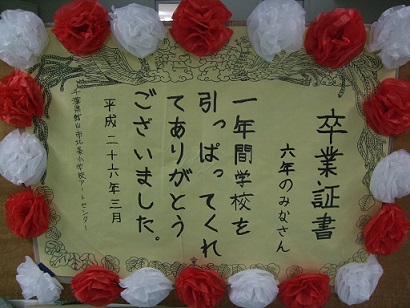 卒業証書
六年のみなさん
一年間学校を
引っぱってくれ
てありがとう
ございました。
平成二十六年三月
千葉県館山市北条小学校アートセンター